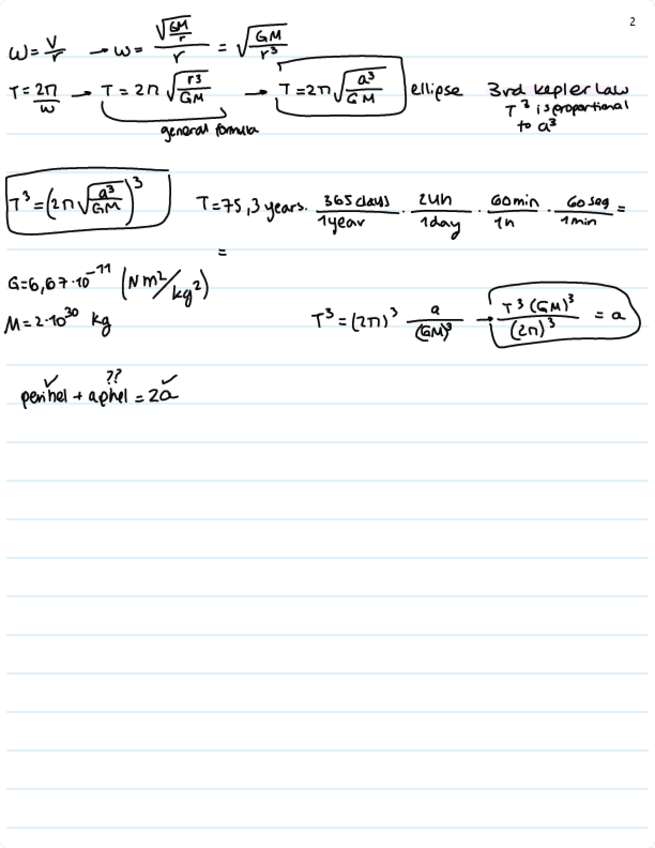 2
ω = v/r → ω = √(GM/r)/r = √(GM/r³)
T = 2π/ω → T = 2π √(r³/GM) → T = 2π √(a³/GM) ellipse 3rd kepler law
T³ is proportional
to a³
general formula
T³ = (2π √(a³/GM))³ T = 75,3 years. 365 days/1 year · 24h/1 day · 60 min/1h · 60 seg/1 min =
=
G = 6,67·10⁻¹¹ (Nm²/kg²)
M = 2·10³⁰ kg T³ = (2π)³ a/(GM)³ → T³(GM)³/(2π)³ = a
✓ ?? ✓
perihel + aphel = 2a